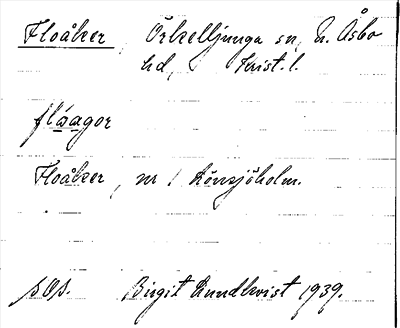 Floåker, Örkelljunga sn, N. Åsbo
hd, Krist. l.
flåagor
Floåker, nr 1 Rönsjöholm.
sOs. Birgit Lundkvist 1939.